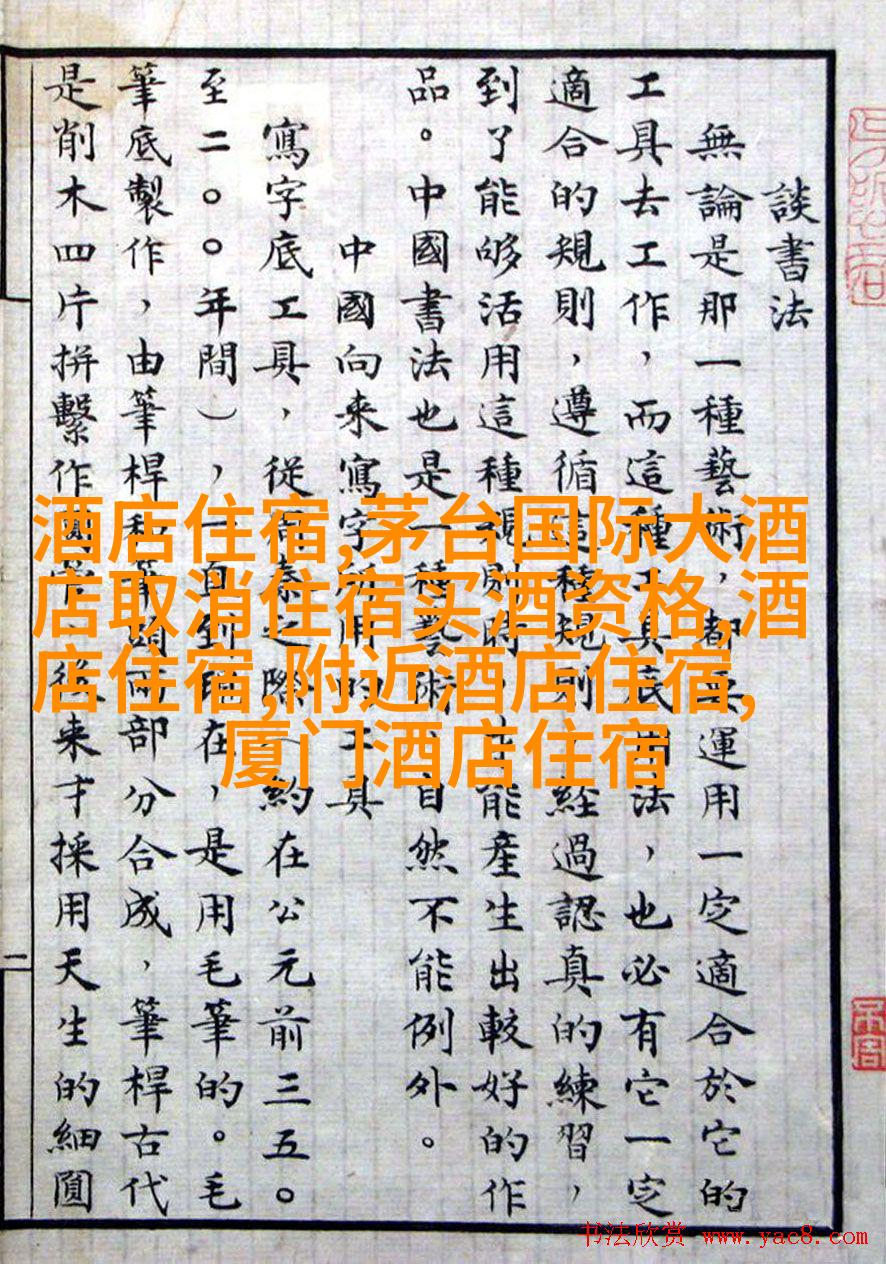 談書法
無論是那一種藝術，都要運用一定適合於它的
工具去工作，而這種工具底用法，也必有它一定
適合的規則，遵循這種規則，經過認真的練習，
到了能够活用這種規則時，才能產生出較好的作
品。中國書法也是一種藝術，自然不能例外。
中國向来寫字所用的工具
寫字底工具，從周秦之際（約在公元前三五〇
至二〇〇年間），一直到現在，是用毛筆的。毛
筆底製作，由筆桿和筆頭兩部分合成，筆桿古代
是削木四片拼繫作圓管，後来才採用天生的細圓
二
酒店住宿,茅台国际大酒
店取消住宿买酒资格,酒
店住宿,附近酒店住宿,
厦门酒店住宿
书法欣赏 www.yac8.com